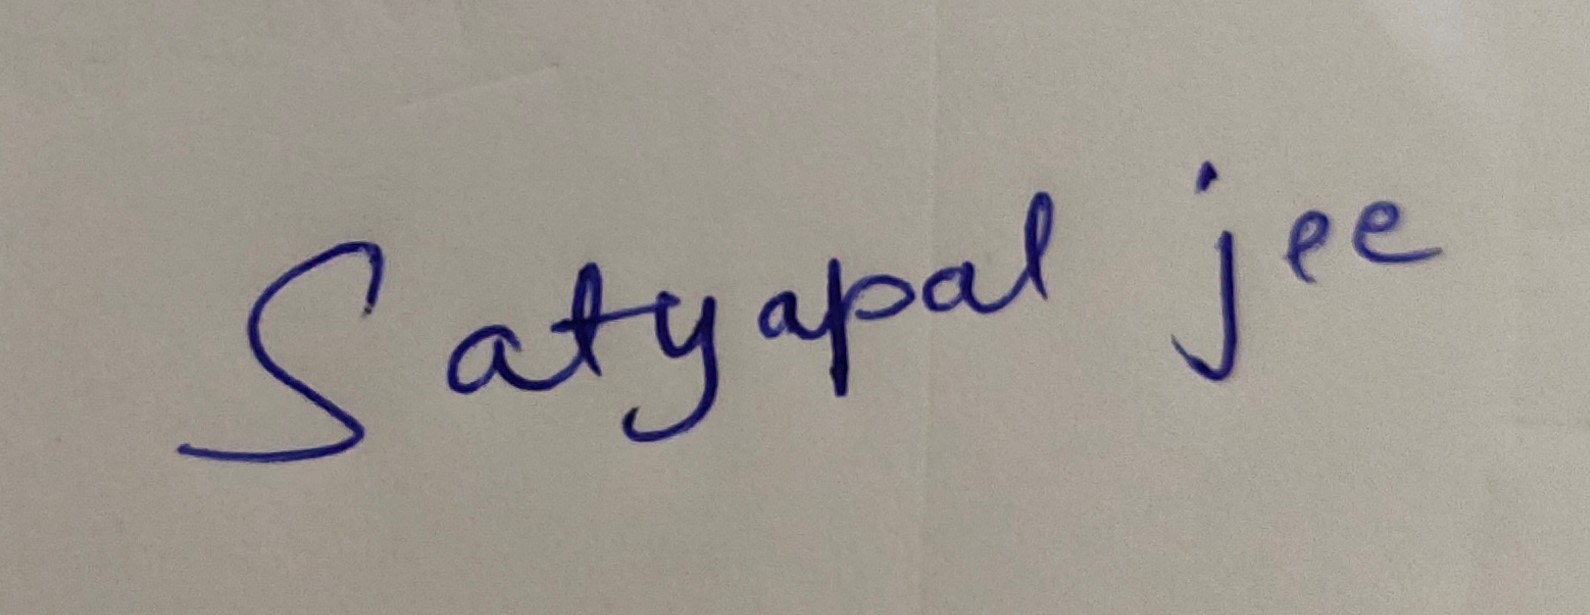 Satyapal jee